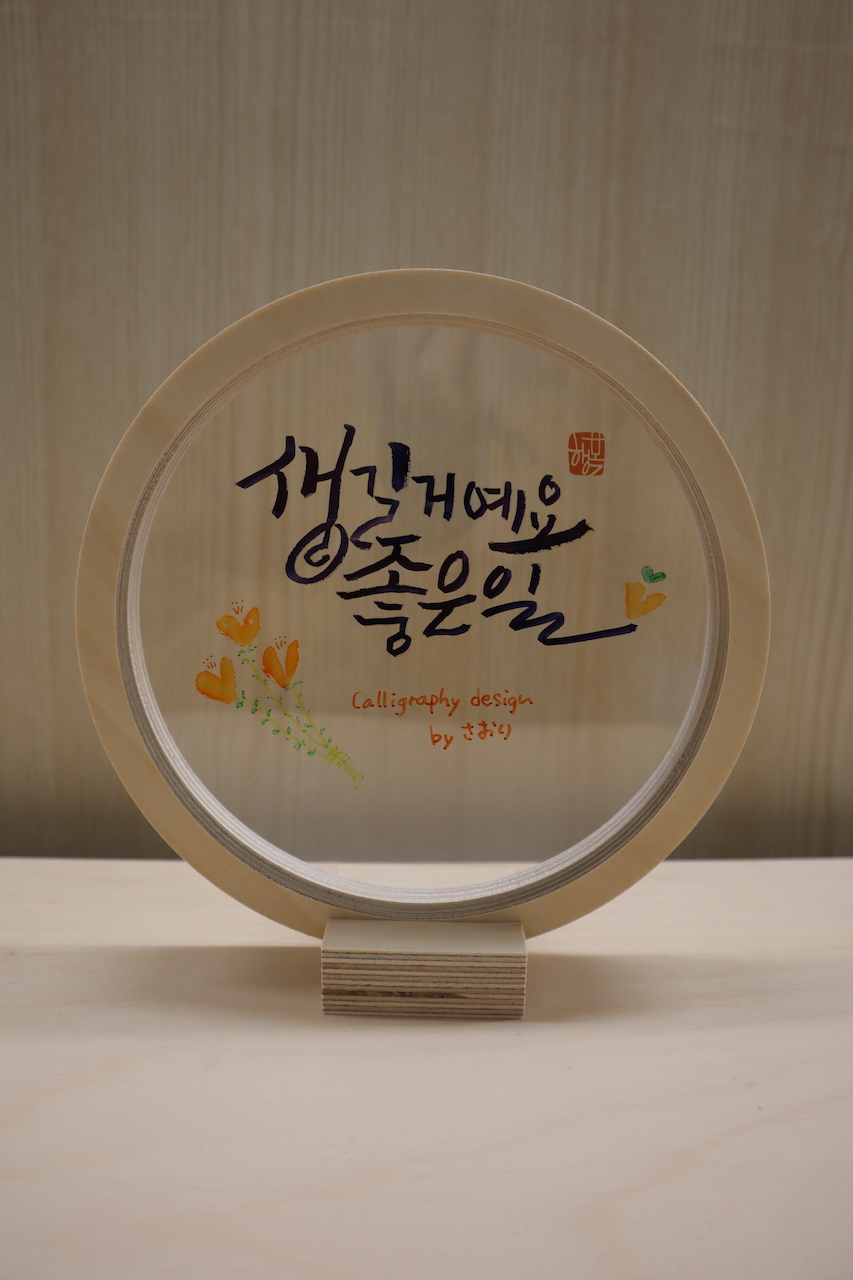 생길거예요
좋은일
행복
Calligraphy design
by さおり